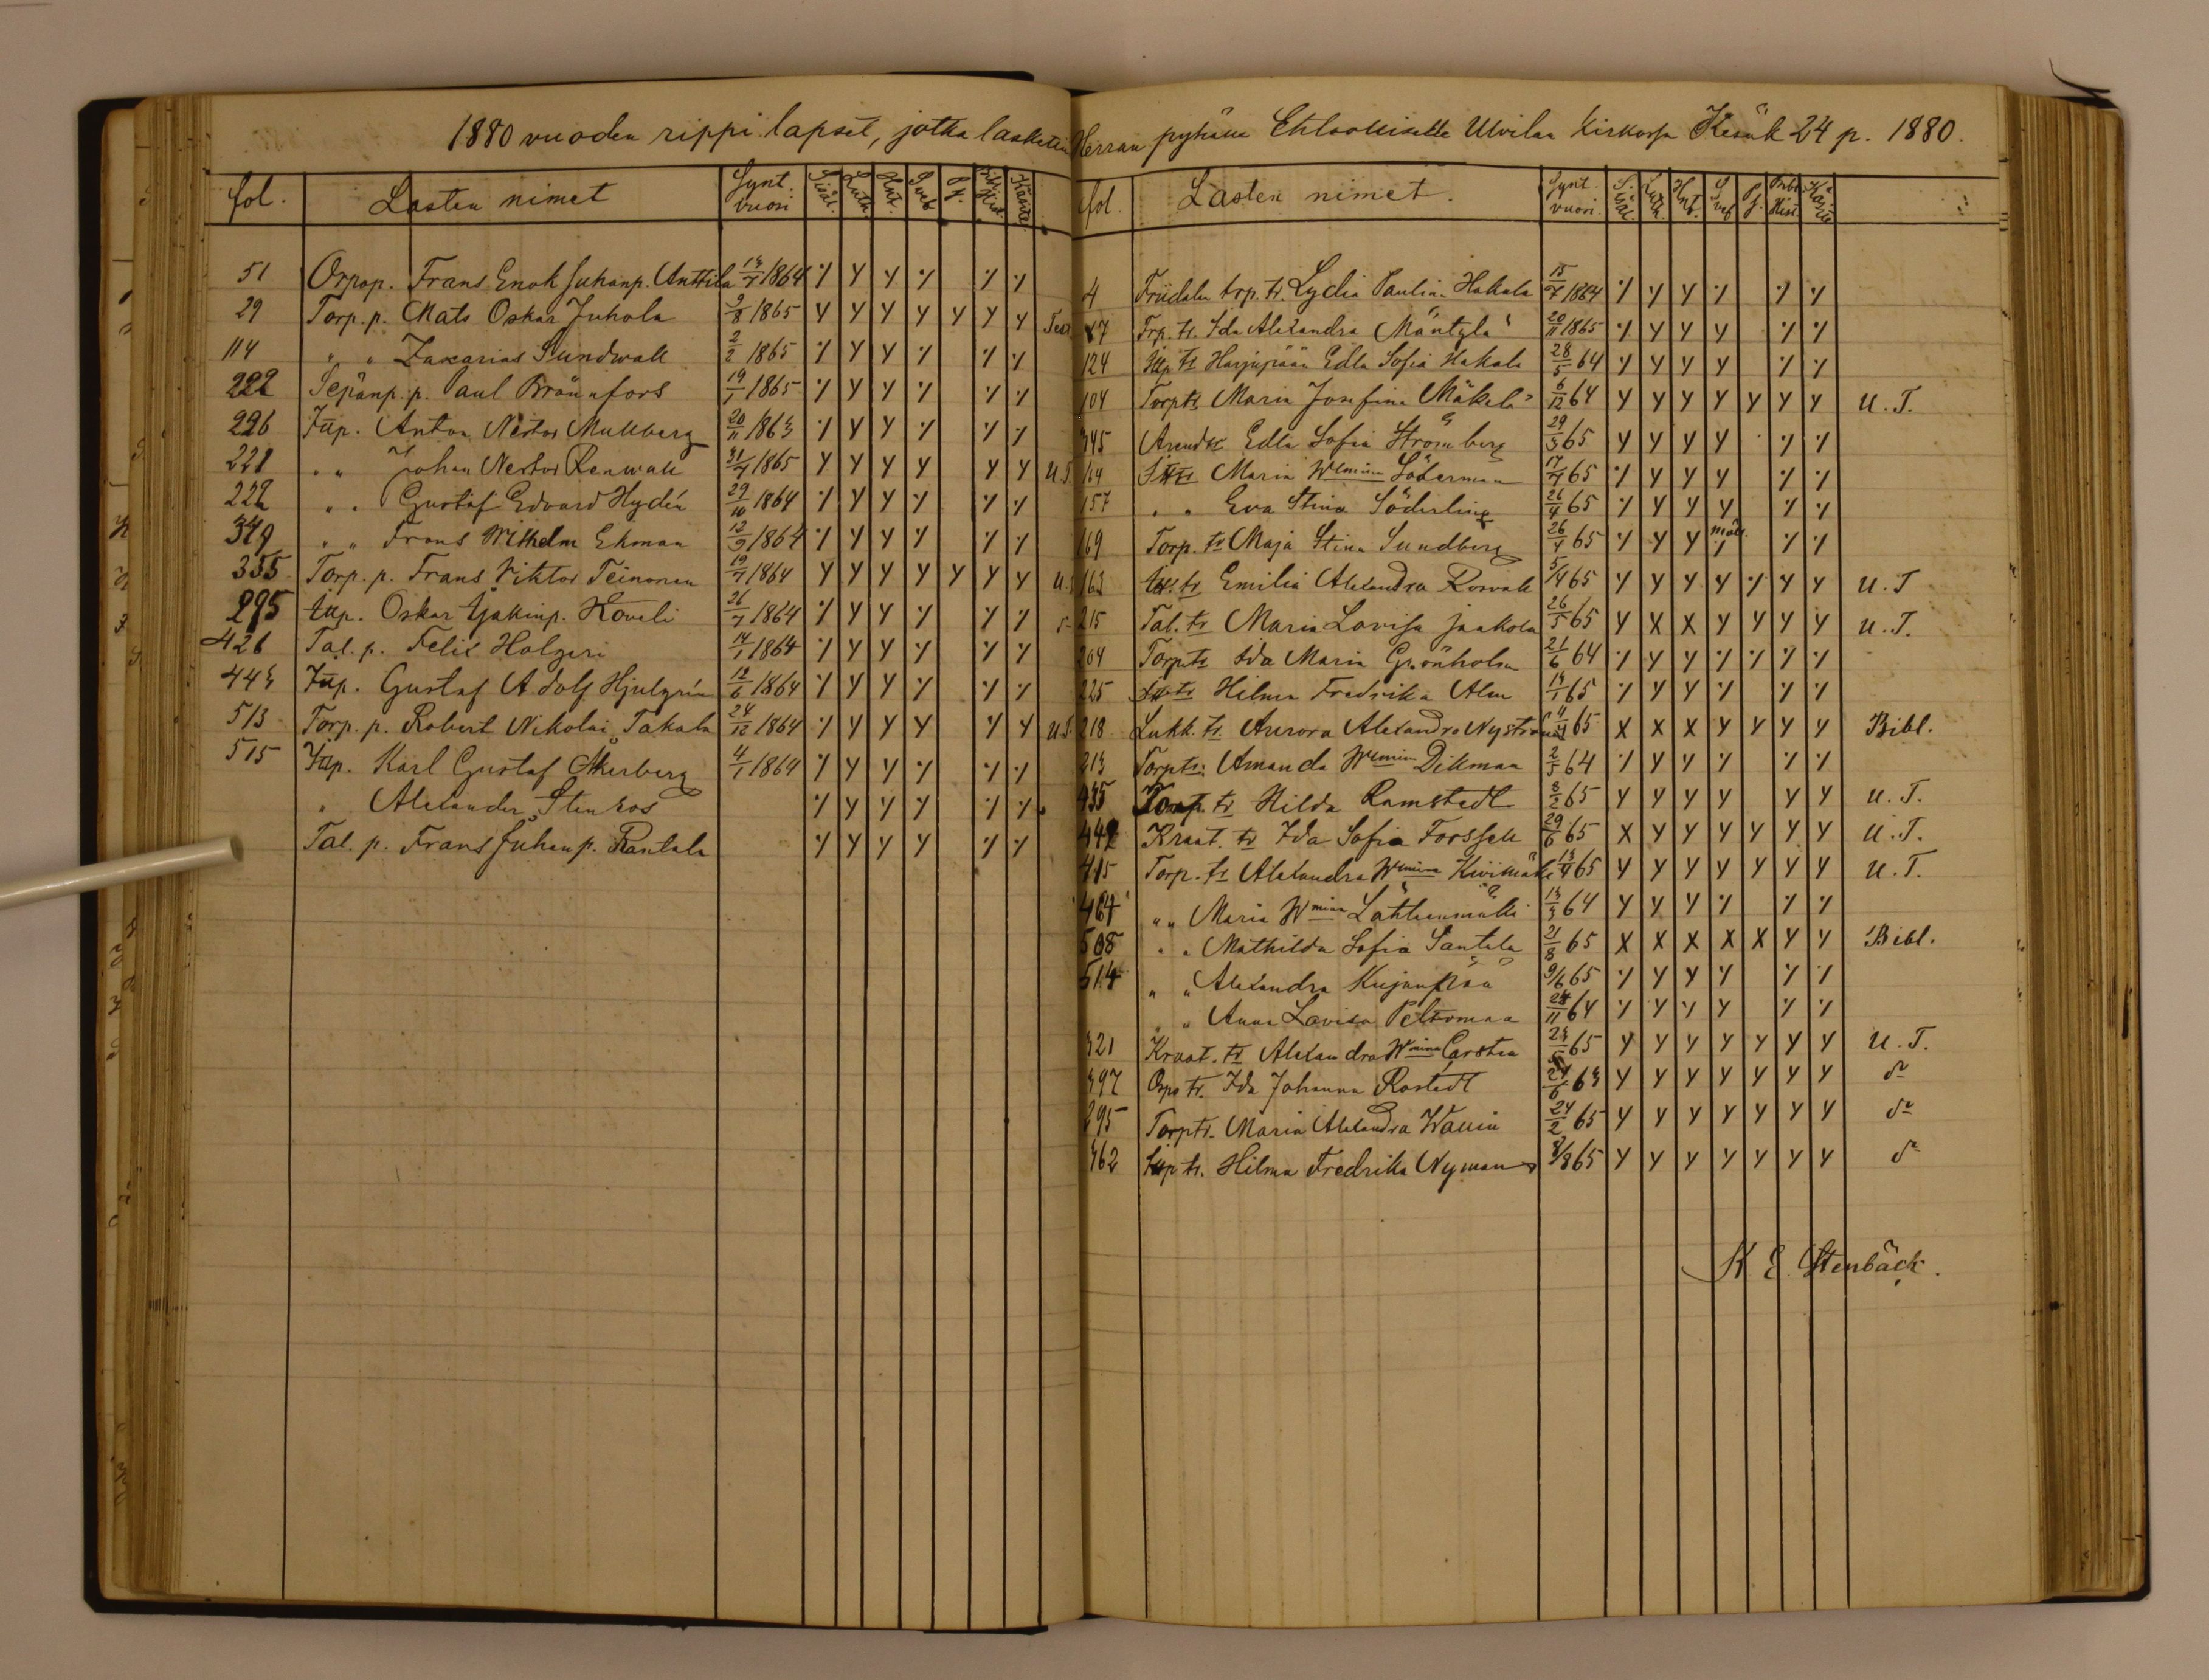 1880 vuoden rippi lapset, jotka laskettiin Herran pyhälle Ehtoolliselle Ulvilan Kirkossa Kesäk 24 p. 1880.
fol. Lasten nimet Synt. vuori Sisäl. Luth. Hust. Sveb P. K. Bibl. Hist. Käsite.
51 Orpop. Frans Enok Juhanp. Anttila 13/7 1864 ⁒ Y Y ⁒ ⁒ ⁒
29 Torp. p. Mats Oskar Juhola 9/8 1865 Y Y Y Y Y Y Y Test
114 " " Zacarias Sundwall 2/2 1865 ⁒ Y Y ⁒ ⁒ ⁒
222 Sepänp. p. Paul Brännfors 19/1 1865 ⁒ Y Y Y ⁒ ⁒
226 Itp. Anton Nestor Mullberg 20/11 1863 ⁒ Y Y ⁒ ⁒ ⁒
221 " " Johan Nestor Renwall 31/7 1865 Y Y Y Y Y Y U. T.
222 " " Gustaf Edvard Hydén 29/10 1864 ⁒ Y Y ⁒ ⁒ ⁒
349 " " Frans Wilhelm Ekman 12/9 1864 ⁒ Y Y Y ⁒ ⁒
355 Torp. p. Frans Viktor Teinonen 19/7 1864 Y Y Y Y Y Y Y U.
295 Itp. Oskar Koveli 26/7 1864 ⁒ Y Y ⁒ ⁒ ⁒
426 Tal. p. Felix Holgeri 14/1 1864 ⁒ Y Y ⁒ ⁒ ⁒
443 Itp. Gustaf Adolf Hjulgrén 12/6 1864 ⁒ Y Y Y ⁒ ⁒
513 Torp. p. Robert Nikolai Takala 24/12 1864 ⁒ Y Y Y ⁒ Y U. T.
515 Itp. Karl Gustaf Åkerberg 4/1 1864 ⁒ Y Y Y ⁒ ⁒
" Alexander Stenroos ⁒ Y Y Y ⁒ ⁒
Tal. p. Frans Juhanp. Rantala ⁒ Y Y Y ⁒ ⁒
fol. Lasten nimet. Synt. vuori Sisäl. Luth. Hust. Sveb P. K. Bibl. Hist. Käsite
4 trp. tr. Lydia Paulina Hakala 15/7 1864 ⁒ Y Y ⁒ ⁒ ⁒
Trp. tr. Ida Alexandra Mäntylä 20/11 1865 ⁒ Y Y Y ⁒ ⁒
124 Itp. tr Harjunpään Edla Sofia Hakala 28/5 64 ⁒ Y Y Y ⁒ ⁒
104 Torp tr Maria Josefina Mäkelä 6/12 64 Y Y Y Y Y Y Y U. T.
345 Edla Sofia Strömberg 29/3 65 Y Y Y Y ⁒ ⁒
164 Itp tr Maria Wilmina Söderman 17/4 65 ⁒ Y Y Y ⁒ ⁒
157 " " Eva Stina Söderling 26/4 65 ⁒ Y Y Y ⁒ ⁒
169 Torp. tr Maja Stina Sundberg 26/4 65 ⁒ Y Y ⁒ ⁒ ⁒
163 Itp. tr Emilia Alexandra Rosvall 5/4 65 Y Y Y Y ⁒ Y Y U. T
215 Tal. tr Maria Lovisa Jaakola 26/5 65 Y X X Y Y Y Y U. T.
204 Torp tr Ida Maria Grönholm 21/6 64 ⁒ Y Y ⁒ ⁒ ⁒ ⁒
225 Itp tr Hilma Fredrika Alm 14/1 65 ⁒ Y Y ⁒ ⁒ ⁒
218 Lukk. tr. Aurora Alexandra Nyström 4/4 65 X X X Y Y Y Y Bibl.
213 Torp tr: Amanda Wilmina Dikman 2/5 64 ⁒ Y Y ⁒ ⁒ ⁒
435 Torp. tr Hilda Ramstedt 8/2 65 Y Y Y Y Y Y U. T.
442 Kraat. tr Ida Sofia Forssell 29/6 65 X Y Y Y Y Y Y U. T.
415 Torp. tr Alexandra Wmina Kivimäki 13/4 65 Y Y Y Y Y Y Y U. T.
464 " " Maria Wmina Lähteenmäki 13/3 64 Y Y Y ⁒ ⁒ ⁒
508 " " Mathilda Sofia Santala 21/8 65 X X X X X Y Y Bibl.
514 " " Alexandra Kujanpää 9/6 65 ⁒ Y Y Y ⁒ ⁒
" " Anna Lovisa Peltomaa 28/11 64 ⁒ Y Y Y ⁒ ⁒
321 Kraat. tr Alexandra Wmina Carsten 23/5 65 Y Y Y Y Y Y Y U. T.
397 Orpo tr. Ida Johanna Rostedt 27/6 63 Y Y Y Y Y Y Y do
295 Torp tr. Maria Alexandra Wallin 24/2 65 Y Y Y Y Y Y Y do
362 Itp tr. Hilma Fredrika Nyman 8/8 65 Y Y Y Y Y Y Y do
K E Stenbäck.